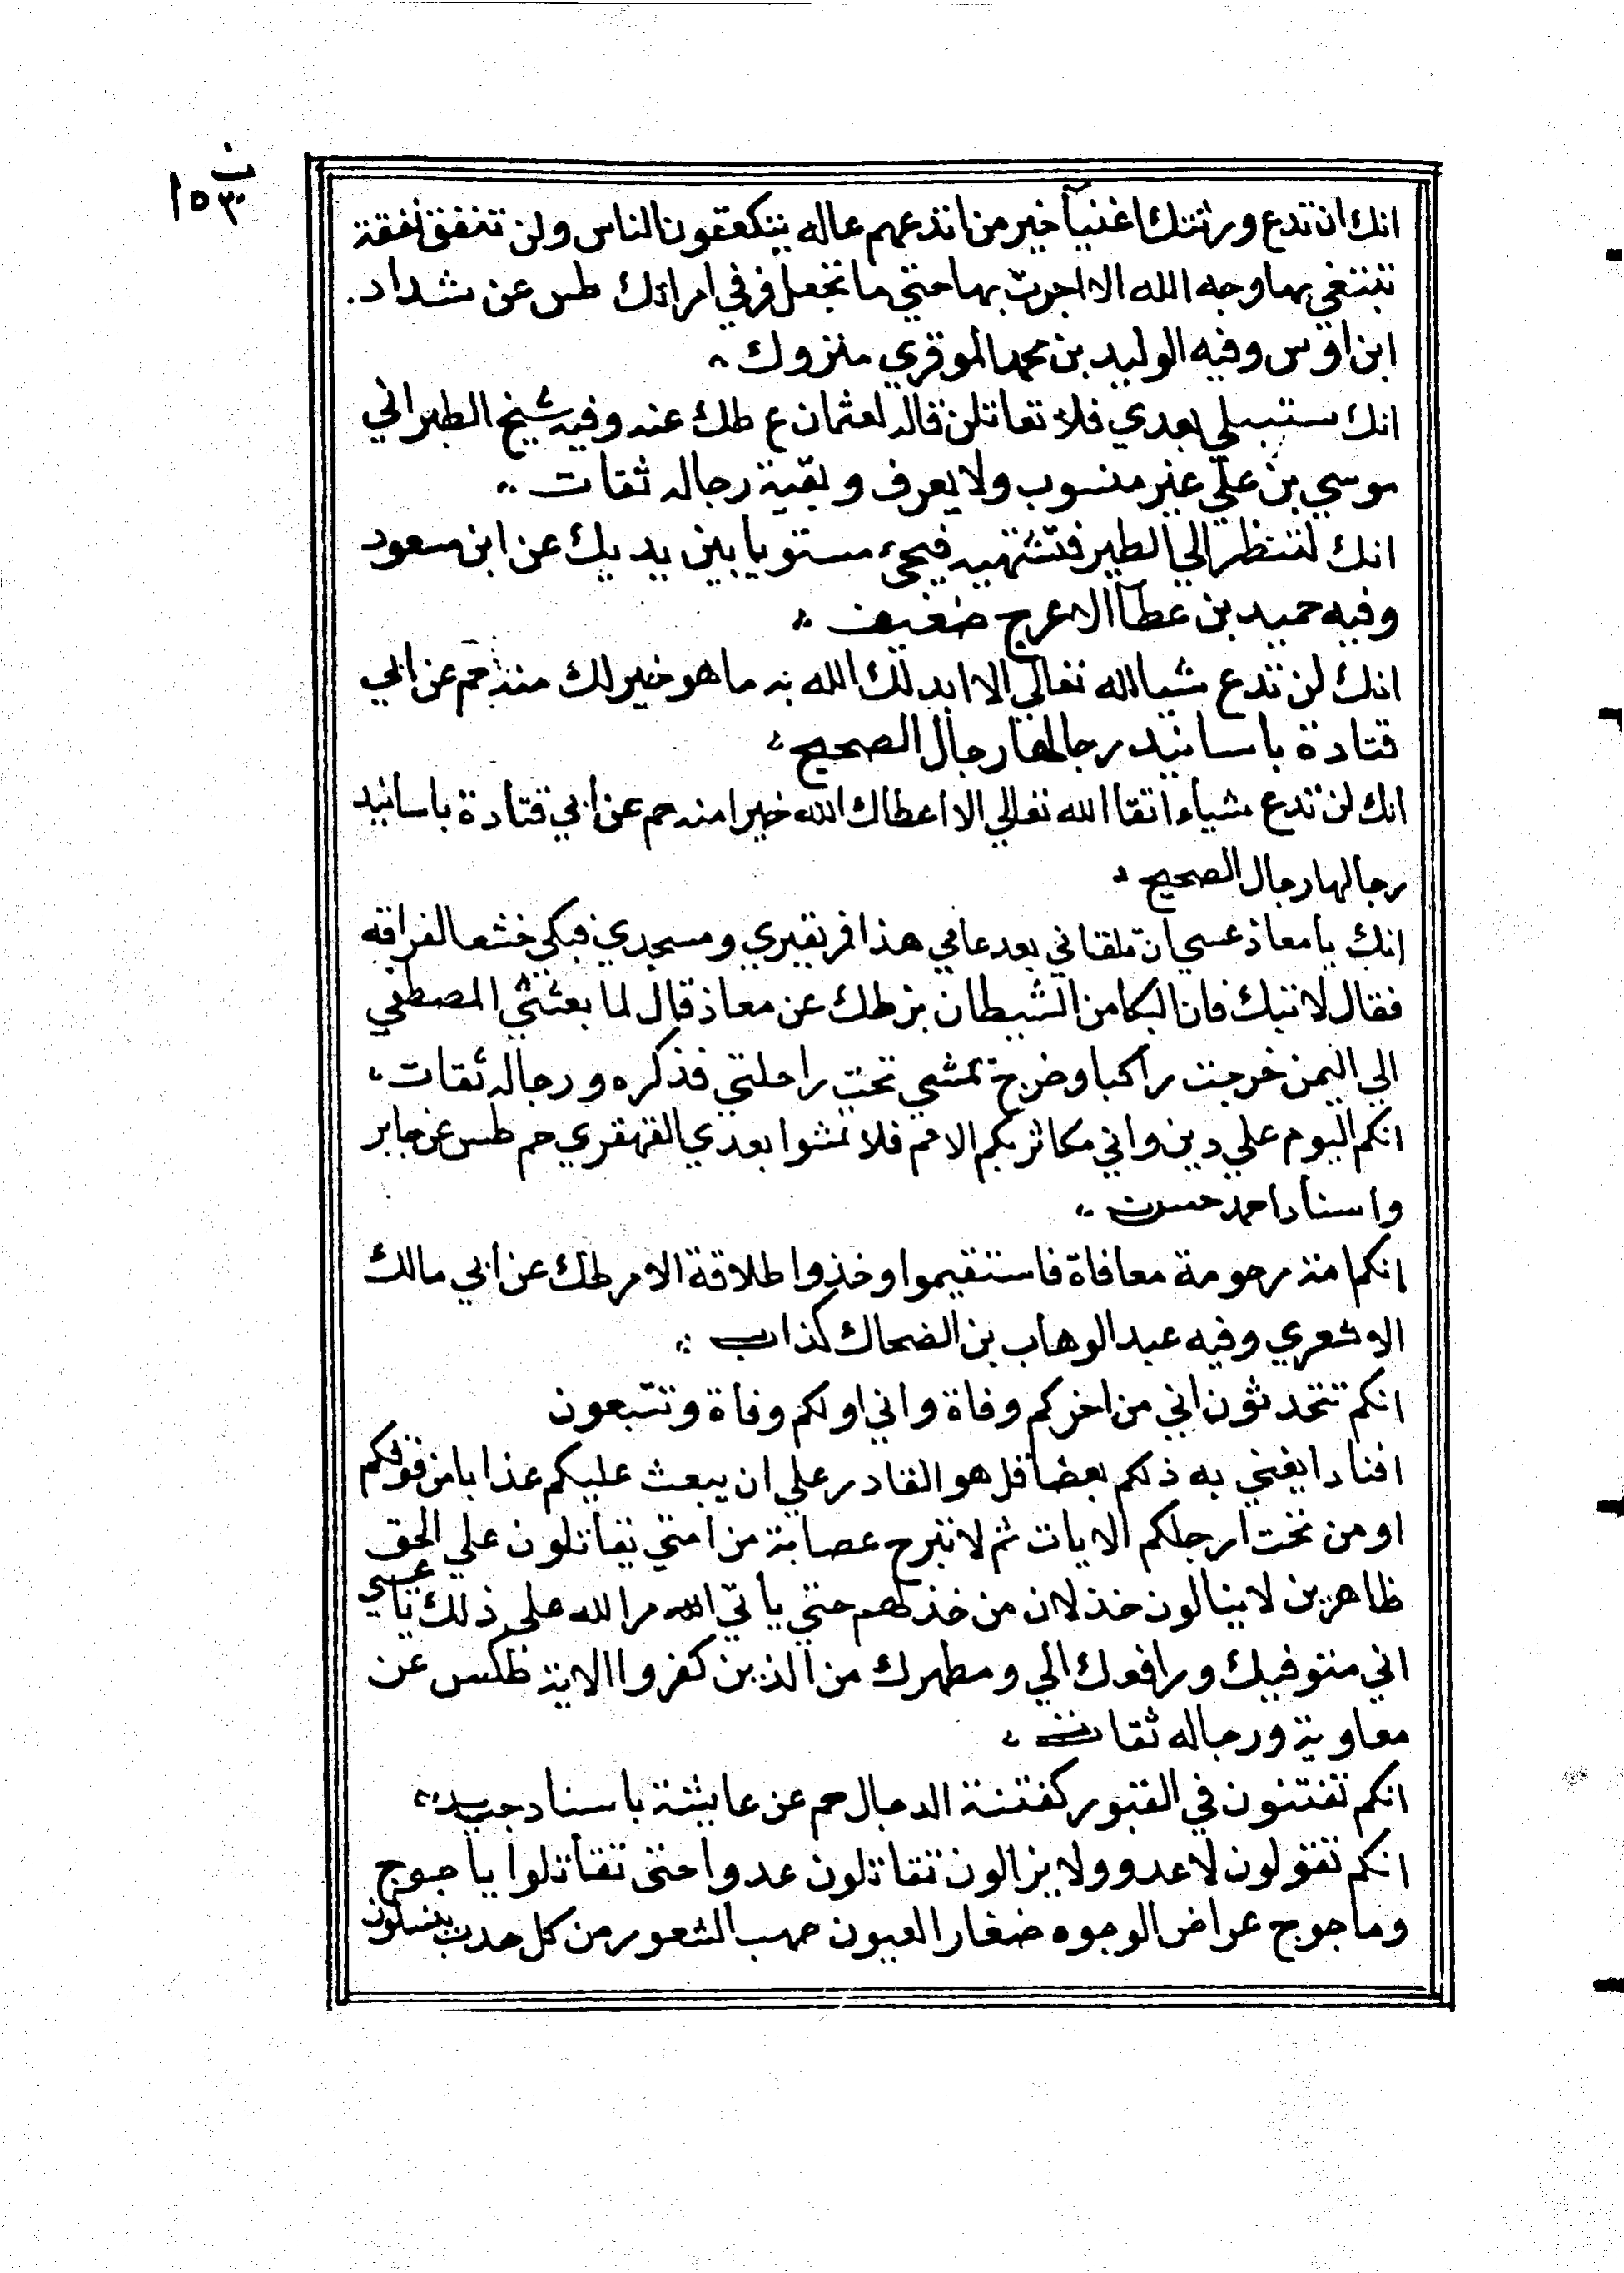 ب
١٥٣
انك ان تدع ورثتك اغنيآ خير من ان تدعهم عاله يتكففون الناس ولن تنفق نفقة
تبتغي بها وجه الله الا اجرت بها حتي ما تجعل في في امراتك طس عن شداد.
ابن اوس وفيه الوليد بن محمد الموقري متروك
انك ستبتلي بعدي فلا تقاتلن قاله لعثمان ع طك عنه وفيه شيخ الطبراني
موسي بن علي غير منسوب ولا يعرف وبقية رجاله ثقات
انك لتنظر الي الطير فتشتهيه فيجئ مستويا بين يديك عن ابن مسعود
وفيه حميد بن عطآ الاعرج ضعيف
انك لن تدع شيا لله تعالي الا ابدلك الله به ما هو خير لك منه حم عن ابي
قتادة باسانيد رجالها رجال الصحيح
انك لن تدع شياء اتقا الله تعالي الا اعطاك الله خيرا منه حم عن ابي قتادة باسانيد
رجالها رجال الصحيح
انك يا معاذ عسي ان تلقاني بعد عامي هذا فمر بقبري ومسجدي فبكي خشعا لفراقه
فقال لا تبك فان البكا من الشيطان بز طك عن معاذ قال لما بعثني المصطفي
الي اليمن خرجت راكبا وخرج يمشي تحت راحلتي فذكره ورجاله ثقات
انكم اليوم علي دين واني مكاثر بكم الامم فلا تمشوا بعدي القهقري حم طس عن جابر
واسناد احمد حسن
انكم امة مرحومة معافاة فاستقيموا وخذوا طلاقة الامر طك عن ابي مالك
الاشعري وفيه عبد الوهاب بن الضحاك كذاب
انكم تتحدثون اني من اخركم وفاة واني اولكم وفاة وتتبعون
افنادا يفني به ذلكم بعضا قل هو القادر علي ان يبعث عليكم عذابا من فوقكم
او من تحت ارجلكم الايات ثم لا تبرح عصابة من امتي يقاتلون علي الحق
ظاهرين لا يبالون خذلان من خذلهم حتي ياتي الله مر الله علي ذلك يا عيسي
اني متوفيك ورافعك الي ومطهرك من الذين كفروا الاية طكس عن
معاوية ورجاله ثقات
انكم تفتنون في القبور كفتنة الدجال حم عن عايشة باسناد جيد
انكم تقولون لا عدو ولا يزالون تقاتلون عدوا حتي تقاتلوا ياجوج
وماجوج عراض الوجوه صغار العيون صهب الشعور من كل حدب ينسلون